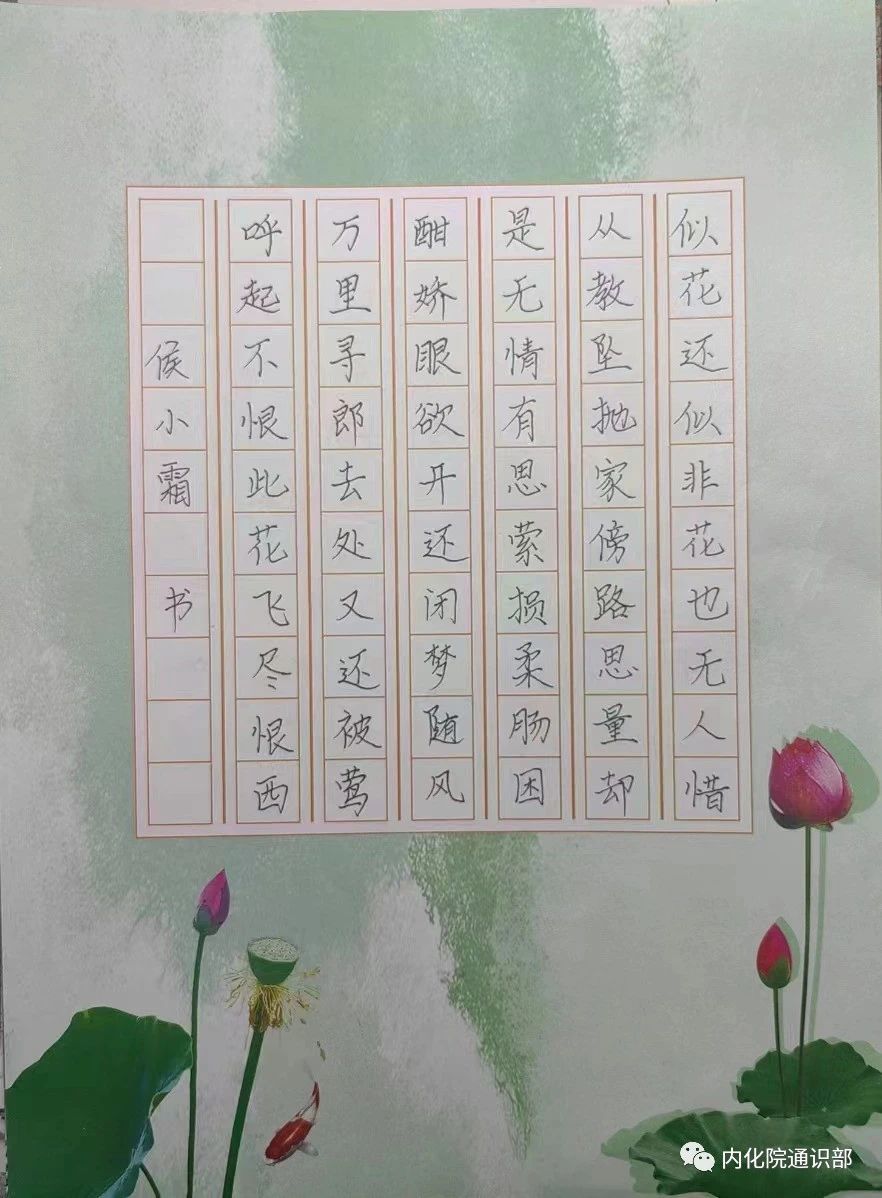 似花还似非花也无人惜
从教坠抛家傍路思量却
是无情有思萦损柔肠困
酣娇眼欲开还闭梦随风
万里寻郎去处又还被莺
呼起不恨此花飞尽恨西
侯小霜 书
内化院通识部